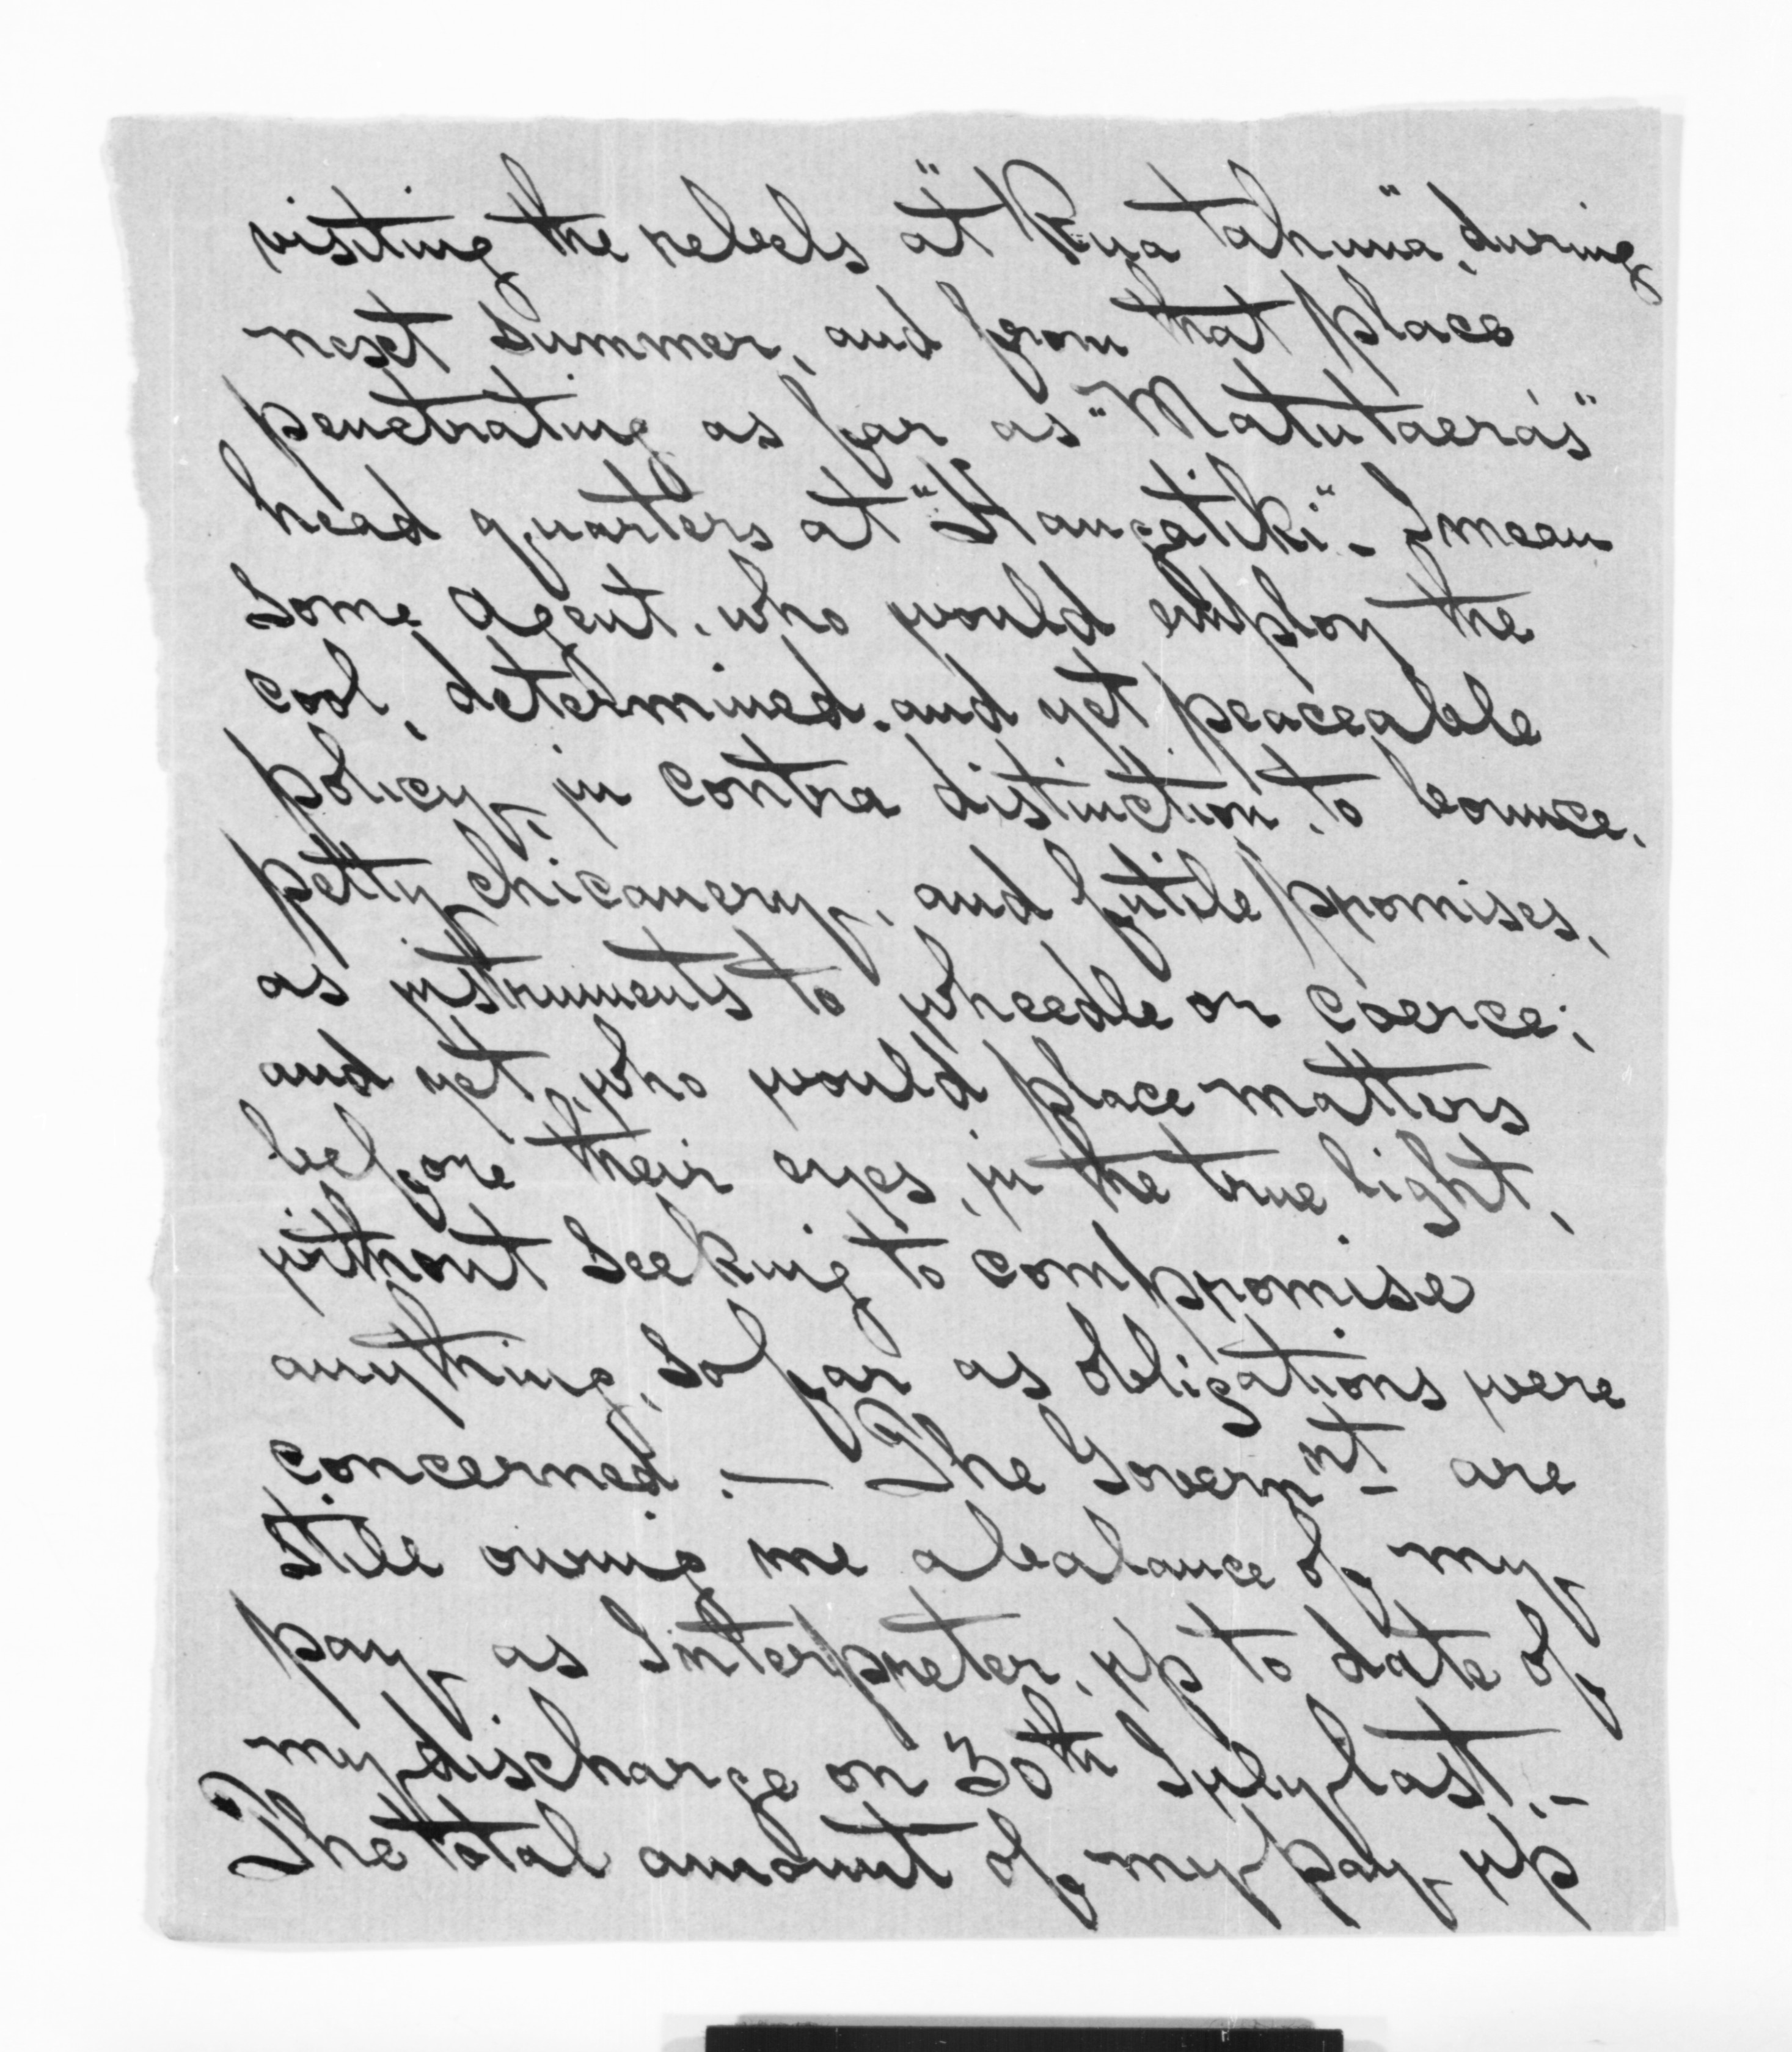 visiting the rebels at "Rua tahuna", during
next Summer, and from that place
penetrating as far as "Matutaera's"
head quarters at "Haugatiki". I mean
some Agent, who would employ the
cool, determined, and yet peaceable
policy, in contra distinction, to bounce,
petty chicanery, and futile promises,
as instruments to wheedle or coerce;
and yet, who would place matters
before their eyes, in the true light,
without seeking to compromise
anything, so far as obligations were
concerned. — The Governmt- are
still owing me a balance of my
pay as Interpreter, up to date of
my discharge on 30th July last. -
The total amount of my pay up